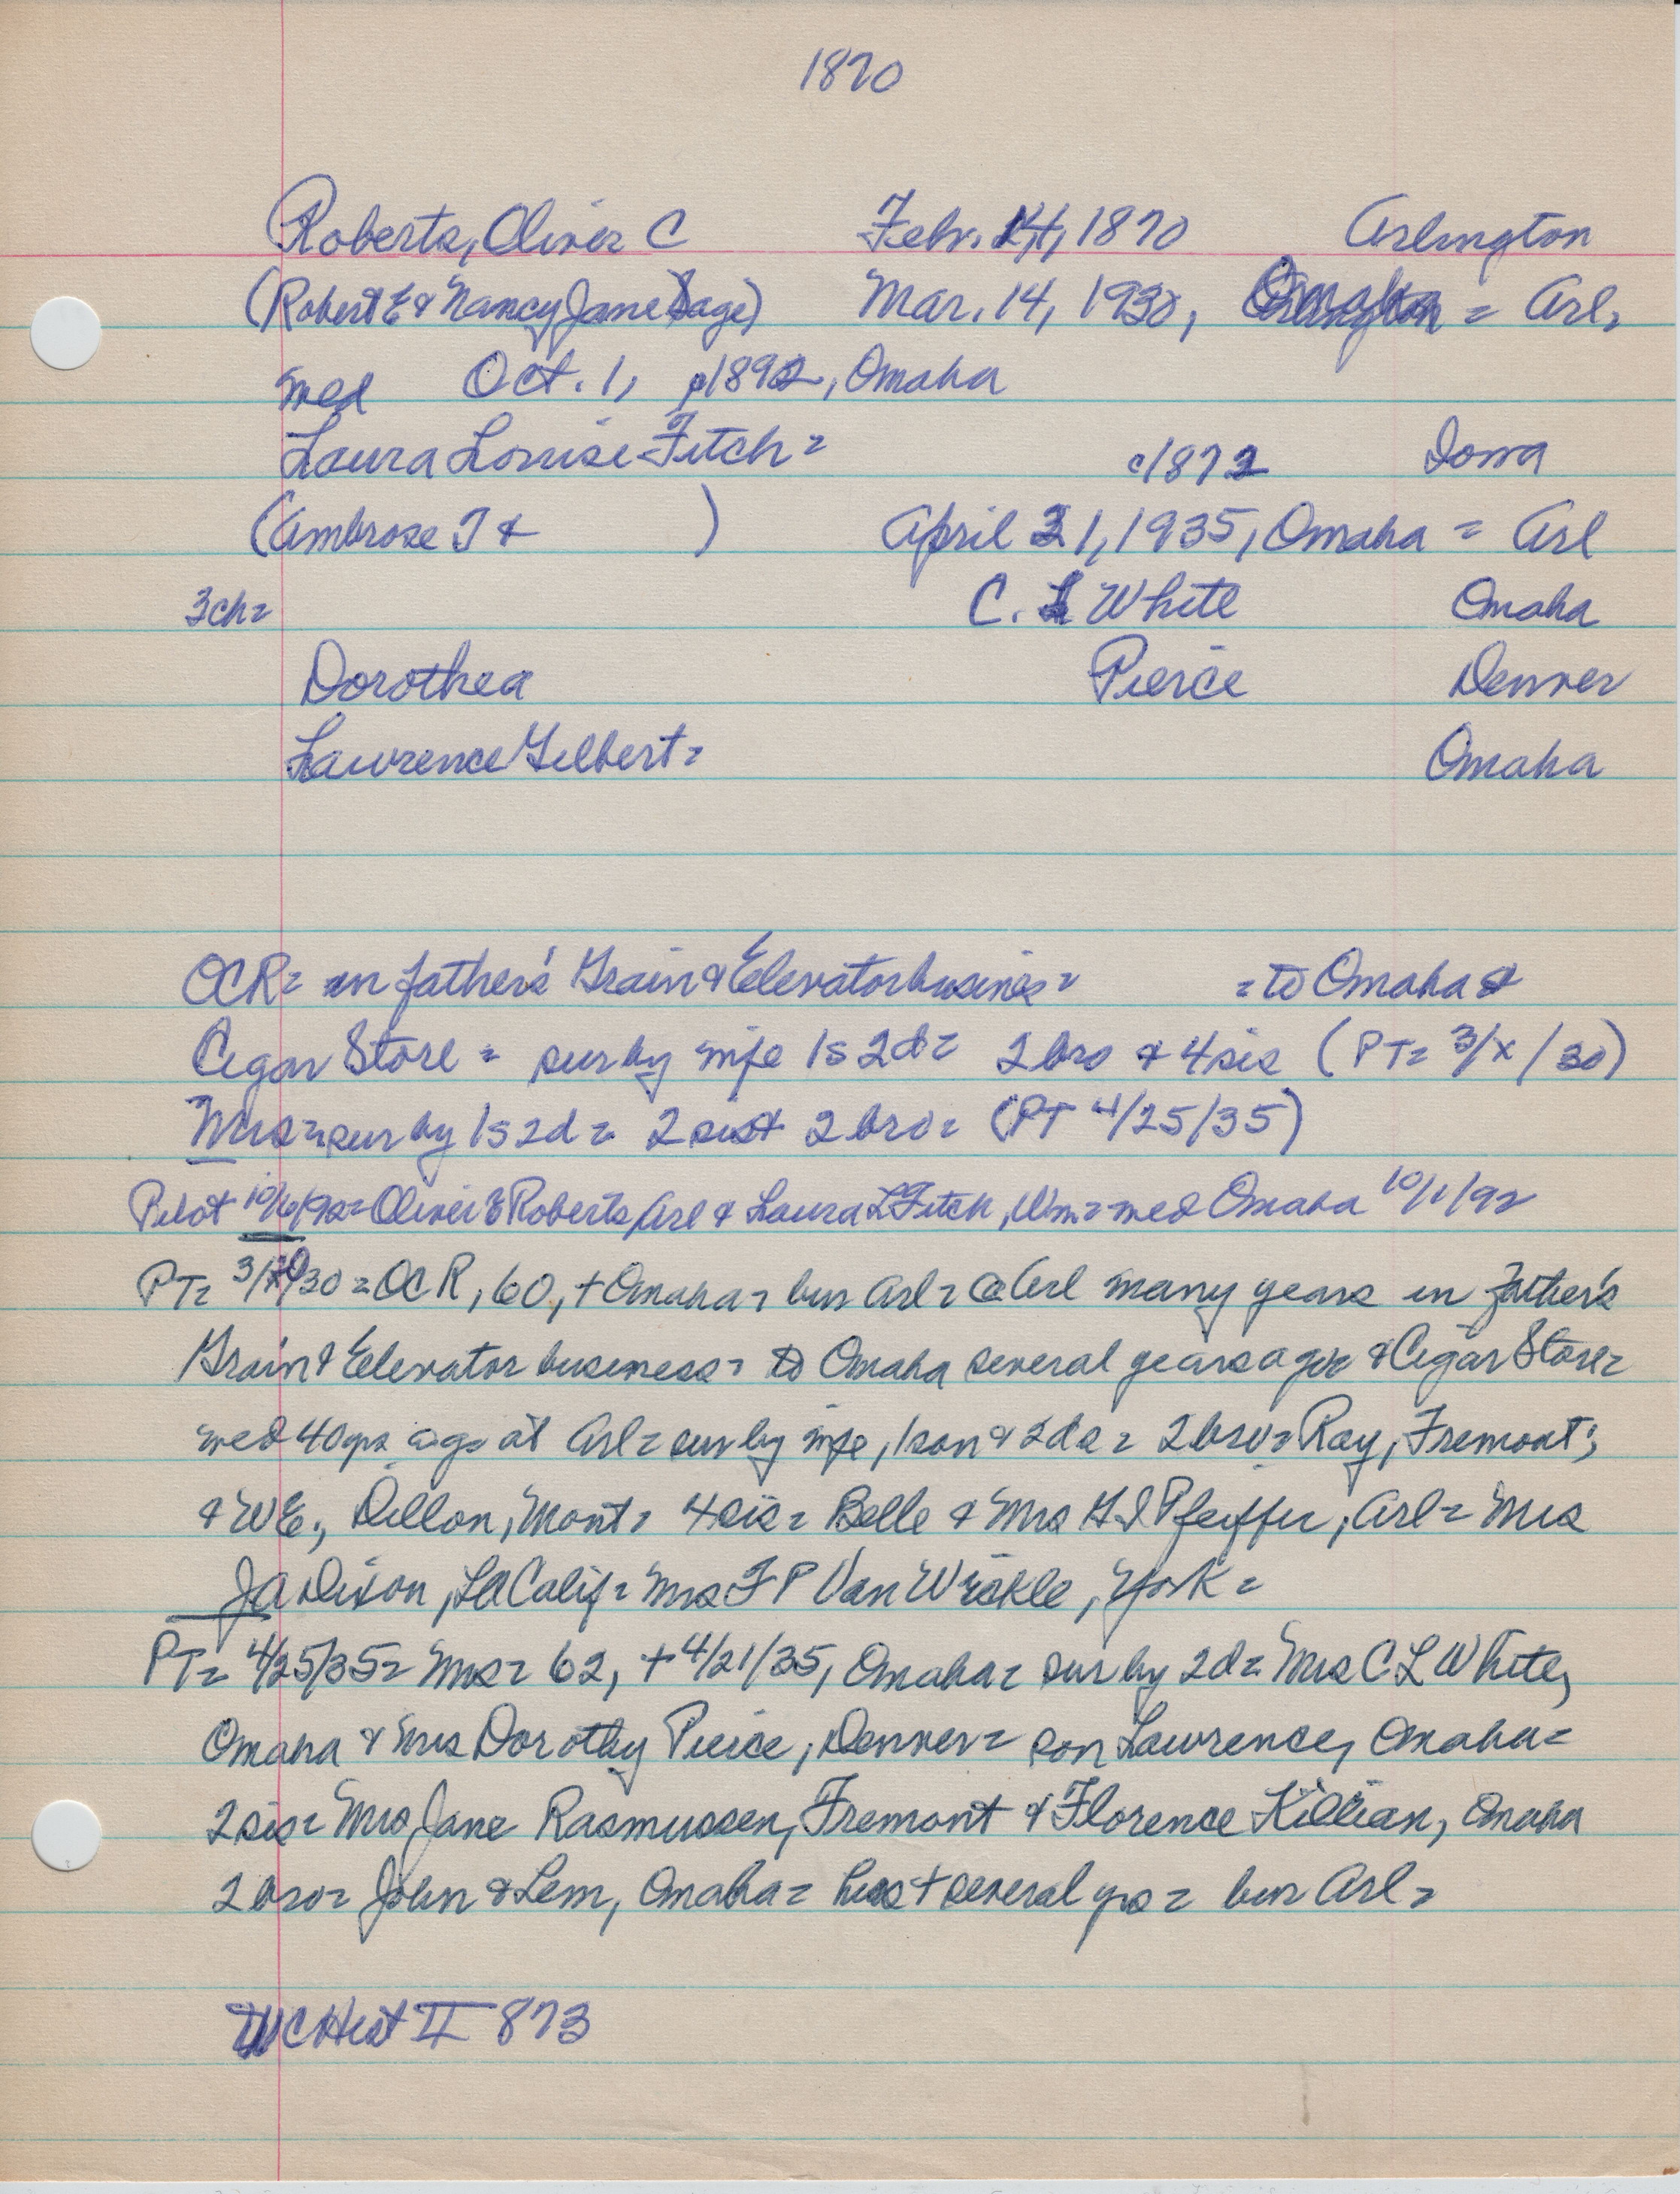 1870
Roberts, Oliver C Febr. 14, 1870 Arlington
(Robert E & Nancy Jane Gage) Mar. 14, 1930, Omaha = Arl,
med Oct. 1, 1892, Omaha
Laura Louise Fitch = c1872 Iowa
(Ambrose T & ) April 21, 1935, Omaha = Arl
3ch= C. L White Omaha
Dorothea Pierce Denver
Lawrence Gilbert = Omaha
OCR= in father's Grain & Elevator business = = to Omaha &
Cigar Store = sur by wife 1s 2d= 2 bro & 4 sis (PT= 3/x/30)
Mrs = sur by 1s 2d = 2 sis & 2 bro= (PT 4/25/35)
Pilot 10/6/92= Oliver E Roberts, Arl & Laura L Fitch, Wm= med Omaha 10/1/92
PT= 3/20/30 = OCR, 60, + Omaha = bur Arl = @ Arl many years in father's
Grain & Elevator business = to Omaha several years ago & Cigar Store=
med 40 yrs ago at Arl = sur by wife, 1 son & 2 ds = 2 bro= Ray, Fremont;
& WE, Dillon, Mont = 4 sis = Belle & Mrs G I Pfeiffer, Arl = Mrs
JA Dixon, LA Calif = Mrs F P Van Wickle, York =
PT= 4/25/35= Mrs = 62, + 4/21/35, Omaha = sur by 2d= Mrs C L White,
Omaha & Mrs Dorothy Pierce, Denver = son Lawrence, Omaha =
2 sis= Mrs Jane Rasmussen, Fremont & Florence Killian, Omaha
2 bro= John & Lem, Omaha = hus + several yrs = bur Arl =
WC Hist II 873